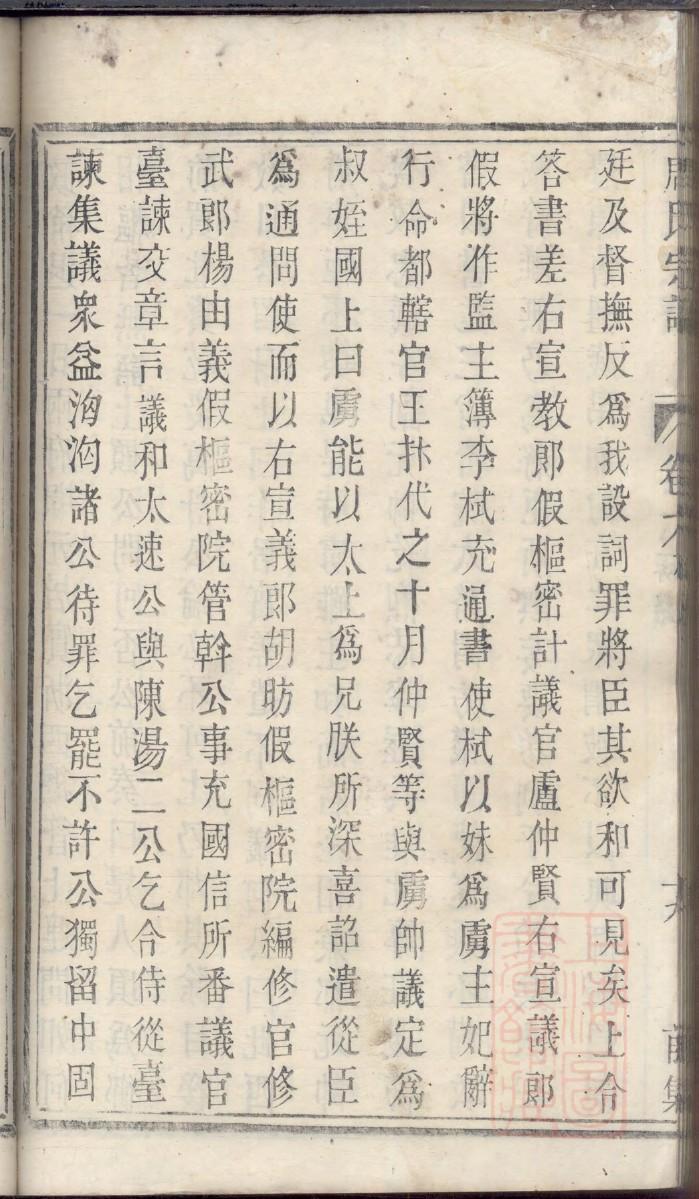 周氏宗譜 卷六 六 前集
廷及督撫反爲我設詞罪將臣其欲和可見矣上令
答書差右宣教郎假樞密計議官盧仲賢右宣議郎
假將作監主簿李栻充通書使栻以妹爲虜主妃辭
行命都轄官王抃代之十月仲賢等與虜帥議定爲
叔姪國上曰虜能以太上爲兄朕所深喜詔遣從臣
爲通問使而以右宣義郎胡昉假樞密院編修官修
武郎楊由義假樞密院管斡公事充國信所番議官
臺諫交章言議和太速公與陳湯二公乞令侍從臺
諫集議衆益洶洶諸公待罪乞罷不許公獨留中固